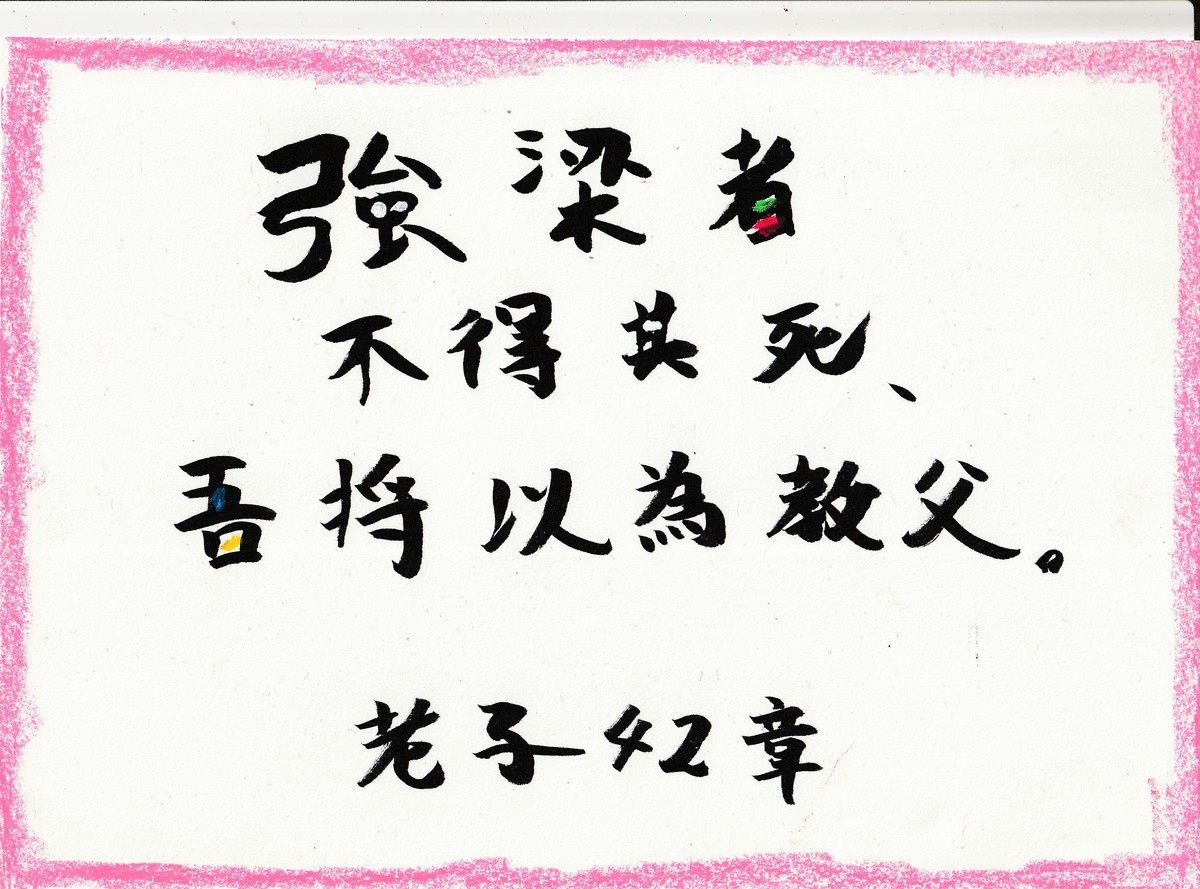 強梁者
不得其死、
吾将以為教父。
老子42章